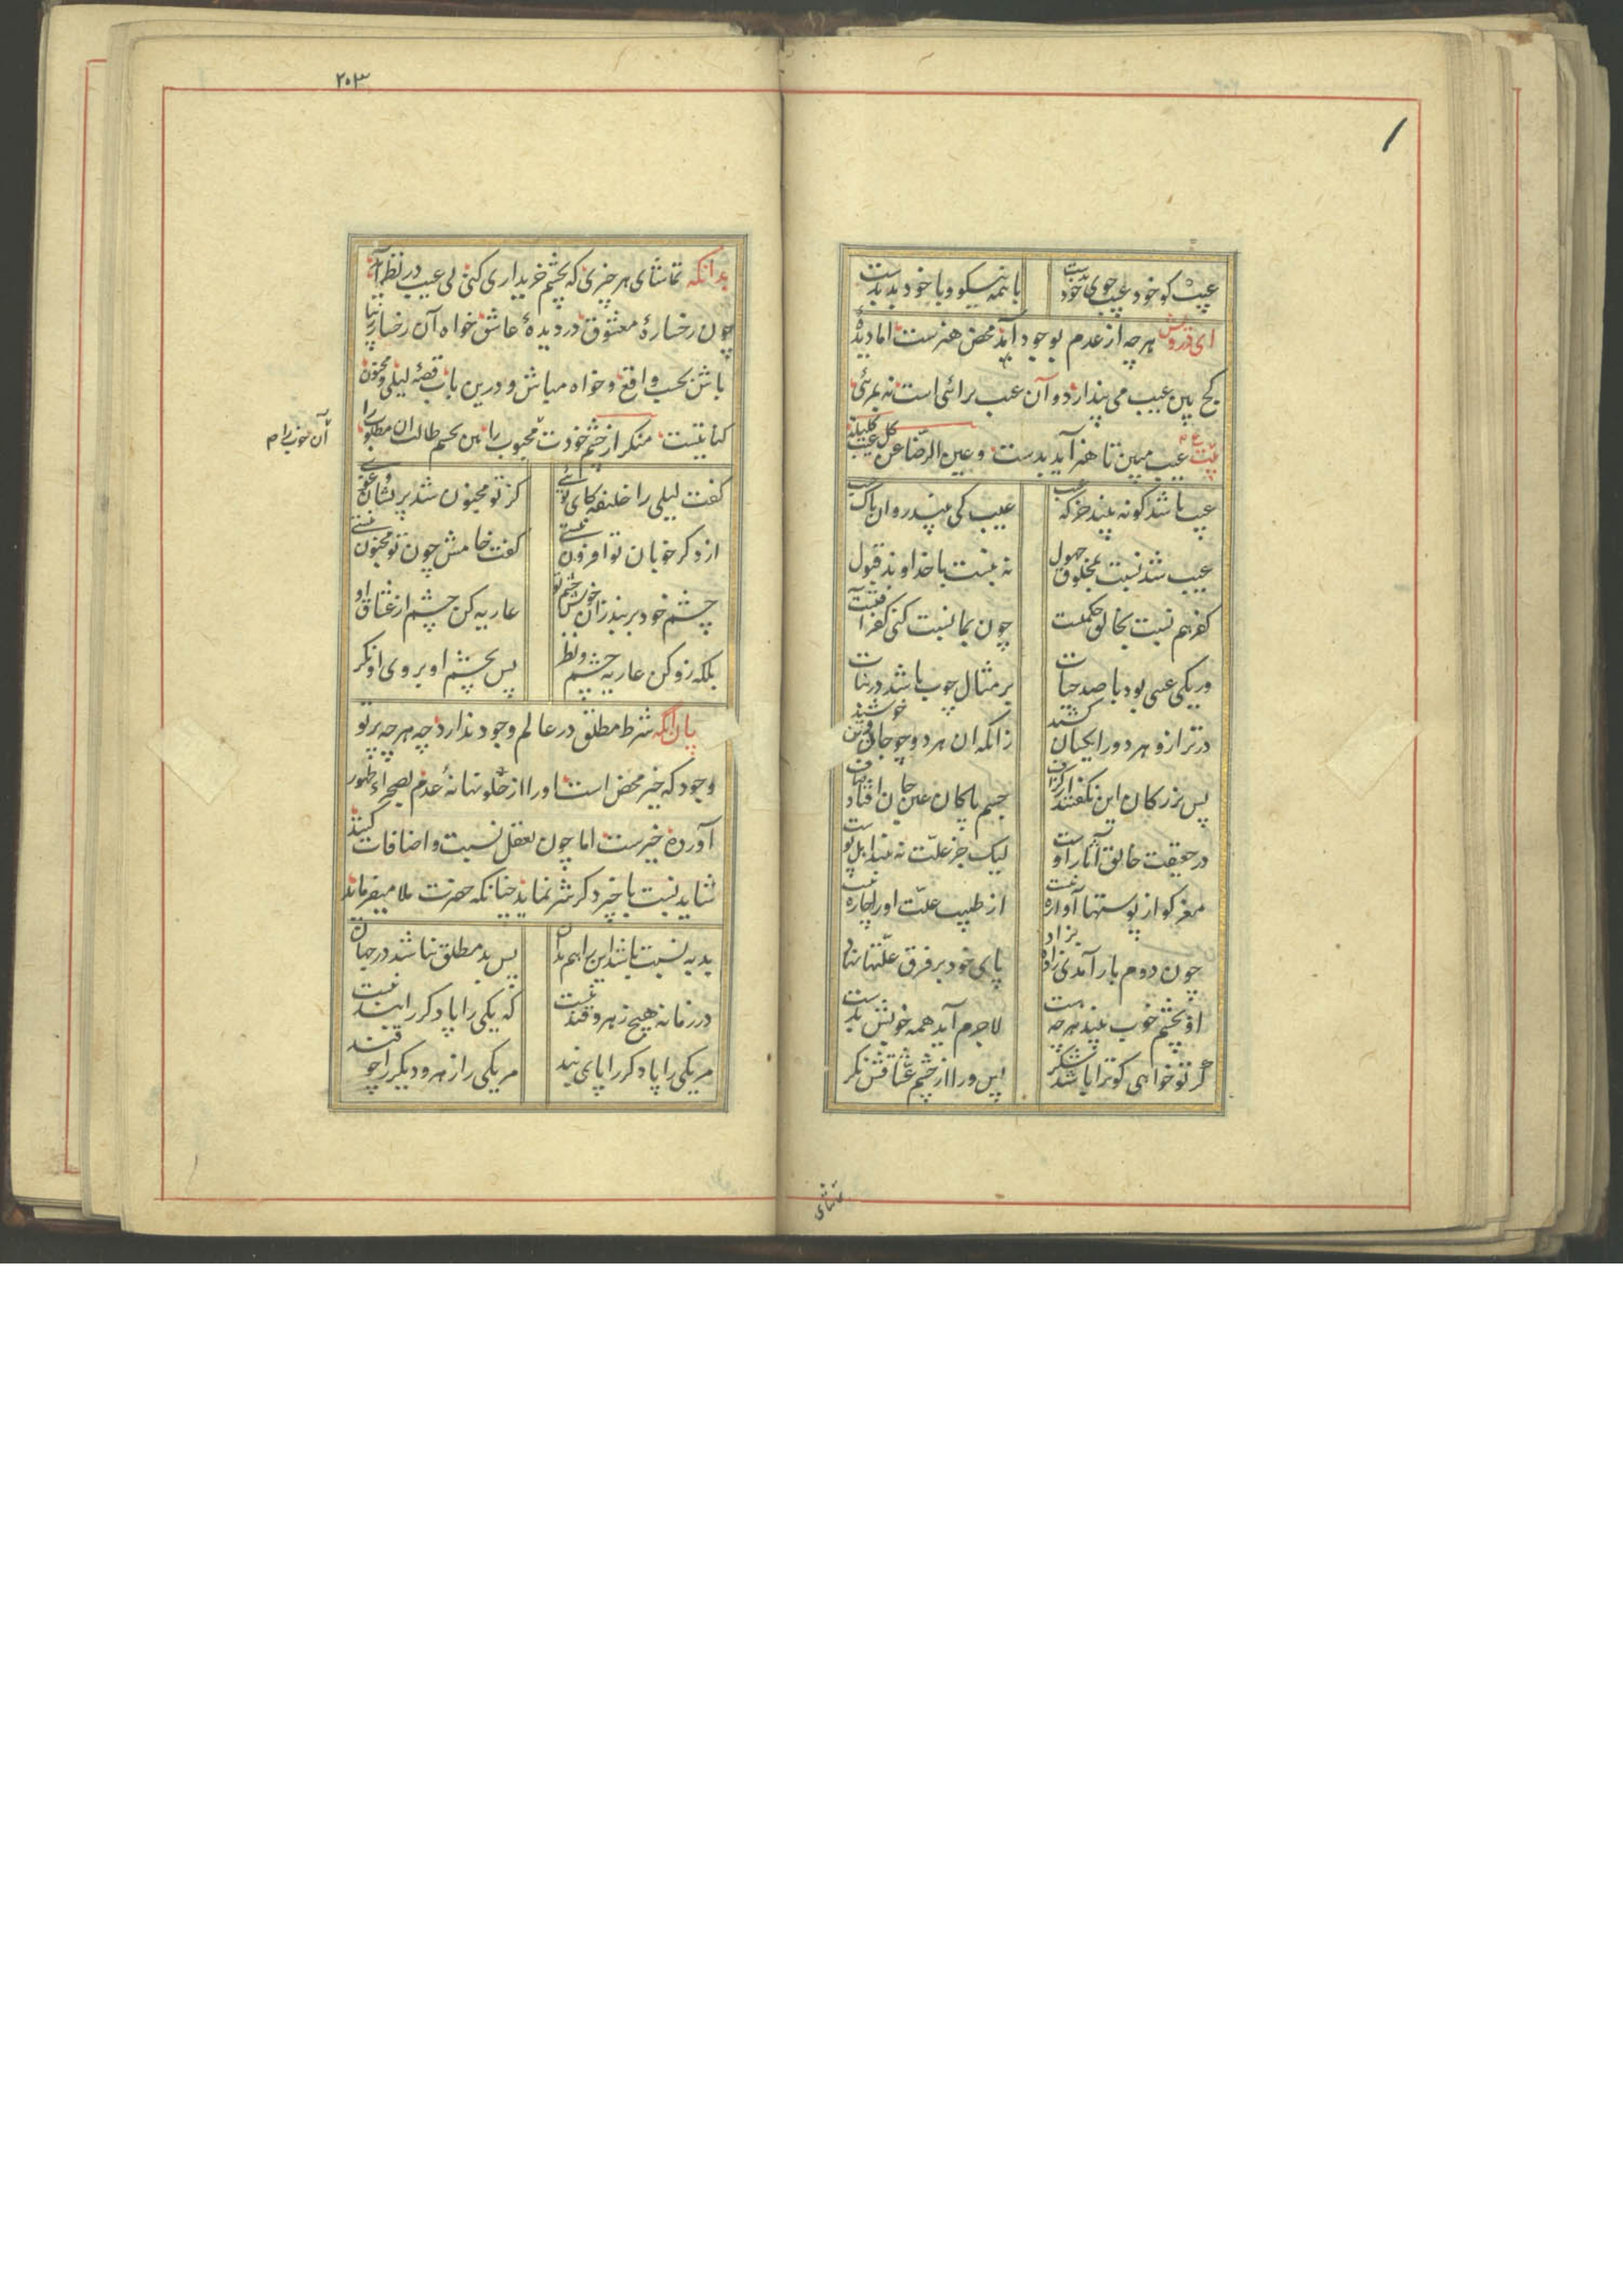 عیب کو خود عیب جوی خودست با همه نیکو و با خود بدبدست
ای درویش هرچه از عدم بوجود آمد محض هنرست اما دیدهٔ
کج بین عیب می پندارد و آن عیب برائی است نه بمرئی
بیت عیب مبین تا هنر آید بدست و عین الرضا عن کل عیب کلیلة
عیب باشد کو نبیند جز که عیب عیب کی بیند روان پاک غیب
عیب شد نسبت بمخلوق جهول نه بنسبت با خداوند قبول
کفر هم نسبت بخالق حکمتست چون بما نسبت کنی کفر آفتست
ور یکی عیبی بود با صد حیات بر مثال چوب باشد در نبات
در ترازو هر دو را یکسان کشند زانکه آن هر دو چو جان و تن خوشند
پس بزرگان این نگفتند از گزاف جسم پاکان عین جان افتاد صاف
در حقیقت خالق آثار اوست لیک جز علت نه بیند اهل پوست
مغز کو از پوستها آواره نیست از طبیب علت او را چاره نیست
چون دوم بار آدمی زاده بزاد پای خود بر فرق علتها نهاد
او بچشم خوب بیند هرچه هست لاجرم آید همه خوبش بدست
گر تو خواهی کو ترا باشد شکر پس ورا از چشم عشاقش نگر
تماشای
۲۰۳
بدانکه تماشای هر چیزی که بچشم خریداری کنی بی عیب در نظر آید
چون رخسارهٔ معشوق در دیدهٔ عاشق خواه آن رخسار زیبا
باش بحسب واقع و خواه مباش و درین باب قصهٔ لیلی و مجنون
کنایتست منگر از چشم خودت محبوب را بین بچشم طالبان مطلوب را
آن خوب را م
گفت لیلی را خلیفه کای توئی کز تو مجنون شد پریشان و غوی
از دگر خوبان تو افزون نیستی گفت خامش چون تو مجنون نیستی
چشم خود بربند زان خوش چشم تو عاریه کن چشم از عشاق او
بلکه زو کن عاریه چشم و نظر پس بچشم او بروی او نگر
بدان که شر مطلق در عالم وجود ندارد چه هرچه پرتو
وجود که خیر محض است او را از خلوتخانهٔ عدم بصحراء ظهور
آورده خیرست اما چون تعقل نسبت و اضافات کنند
شاید نسبت با چیز دگر شر نماید چنانکه حضرت ملا میفرماید
بد به نسبت باشد این را هم بدان پس بد مطلق نباشد در جهان
در زمانه هیچ زهر و قند نیست که یکی را پا دگر را بند نیست
مر یکی را پا دگر را پای بند مر یکی را زهر و دیگر را چو قند